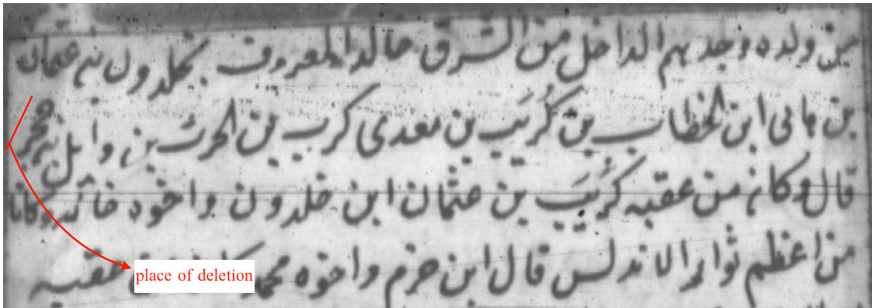 من ولده وجدهم الداخل من الشرق خالد المعروف بخلدون بن عثمان
بن هانى ابن الخطاب بن كُرَيب بن معدى كرب بن الحرث بن وايل بن حجر
قال وكان من عقبه كُرَيب بن عثمان ابن خلدون واخوه خالد وكانا
من اعظم ثوار الاندلس قال ابن حزم واخوه محمد عقبه
place of deletion